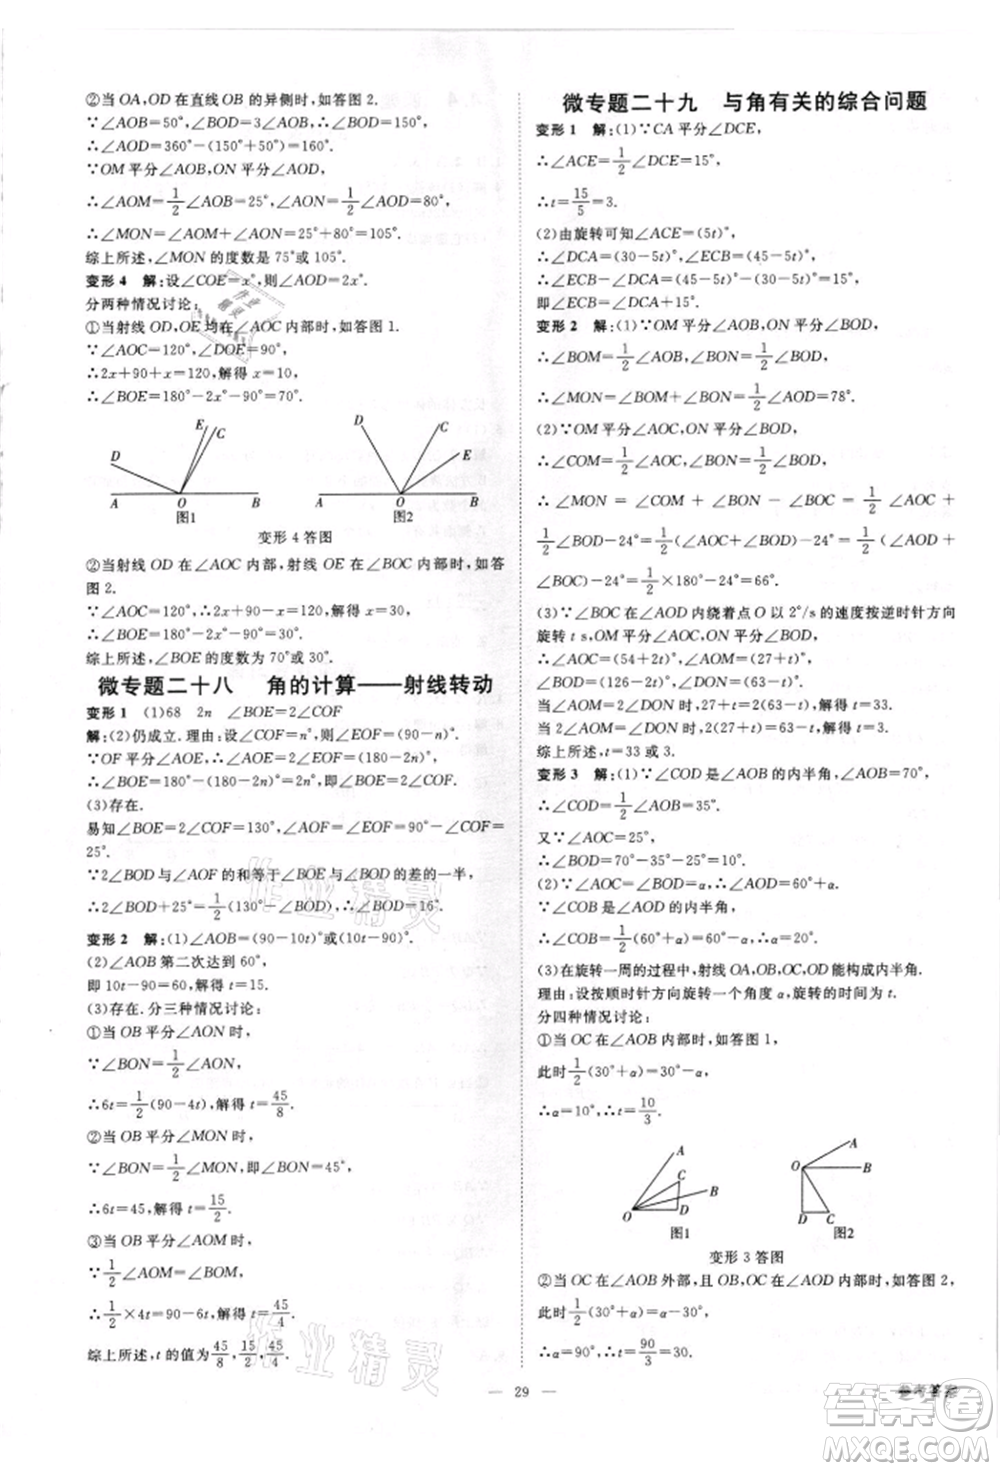 ②当OA,OD在直线OB的异侧时,如答图2.
∵∠AOB=50°,∠BOD=3∠AOB=150°,
∴∠AOD=360°-(150°+50°)=160°.
∵OM平分∠AOB,ON平分∠AOD,
∴∠AOM=1/2∠AOB=25°,∠AON=1/2∠AOD=80°,
∴∠MON=∠AOM+∠AON=25°+80°=105°.
综上所述,∠MON的度数是75°或105°.
变形4 解:设∠COE=x°,则∠AOD=2x°.
分两种情况讨论:
①当射线OD,OE均在∠AOC内部时,如答图1.
∵∠AOC=120°,∠DOE=90°,
∴2x+90+x=120,解得x=10.
∴∠BOE=180°-2x°-90°=70°.
E C D A O B 图1
D C E A O B 图2
变形4答图
②当射线OD在∠AOC内部,射线OE在∠BOC内部时,如答
图2.
∵∠AOC=120°,∴2x+90-x=120,解得x=30.
∴∠BOE=180°-2x°-90°=30°.
综上所述,∠BOE的度数为70°或30°.
微专题二十八 角的计算——射线转动
变形1 (1)68 2n ∠BOE=2∠COF
解:(2)仍成立.理由:设∠COF=n°,则∠EOF=(90-n)°.
∵OF平分∠AOE,∴∠AOE=2∠EOF=(180-2n)°.
∴∠BOE=180°-(180-2n)°=2n°,即∠BOE=2∠COF.
(3)存在.
易知∠BOE=2∠COF=130°,∠AOF=∠EOF=90°-∠COF=
25°.
∵2∠BOD与∠AOF的和等于∠BOE与∠BOD的差的一半,
∴2∠BOD+25°=1/2(130°-∠BOD),∴∠BOD=16°.
变形2 解:(1)∠AOB=(90-10t)°或(10t-90)°.
(2)∠AOB第二次达到60°时,
即10t-90=60,解得t=15.
(3)存在.分三种情况讨论:
①当OB平分∠AON时,
∵∠BON=1/2∠AON,
∴6t=1/2(90-4t),解得t=45/8.
②当OB平分∠MON时,
∵∠BON=1/2∠MON,即∠BON=45°,
∴6t=45,解得t=15/2.
③当OA平分∠MOB时,
∵∠AOM=1/2∠BOM,
∴1/2×4t=90-6t,解得t=45/4.
综上所述,t的值为45/8,15/2或45/4.
微专题二十九 与角有关的综合问题
变形1 解:(1)∵CA平分∠DCE,
∴∠ACE=1/2∠DCE=15°,
∴t=15/5=3.
(2)由旋转可知∠ACE=(5t)°,
∴∠DCA=(30-5t)°,∠ECB=(45-5t)°,
∴∠ECB-∠DCA=(45-5t)°-(30-5t)°=15°,
即∠ECB-∠DCA=15°.
变形2 解:(1)∵OM平分∠AOB,ON平分∠BOD,
∴∠BOM=1/2∠AOB,∠BON=1/2∠BOD,
∴∠MON=1/2∠AOB+1/2∠BOD=1/2∠AOD=78°.
(2)∵OM平分∠AOC,ON平分∠BOD,
∴∠MOC=1/2∠AOC,∠BON=1/2∠BOD,
∴∠MON=∠COM+∠BON-∠BOC=1/2∠AOC+
1/2∠BOD-24°=1/2(∠AOC+∠BOD)-24°=1/2(∠AOD+
∠BOC)-24°=1/2×180°-24°=66°.
(3)∵∠BOC在∠AOD内绕着点O以2°/s的速度按逆时针方向
旋转t s,OM平分∠AOC,ON平分∠BOD,
∴∠AOC=(54+2t)°,∠AOM=(27+t)°,
∠BOD=(126-2t)°,∠DON=(63-t)°.
当∠AOM=2∠DON时,27+t=2(63-t),解得t=33.
当2∠AOM=∠DON时,2(27+t)=63-t,解得t=3.
综上所述,t=33或3.
变形3 解:(1)∵∠COD是∠AOB的内半角,∠AOB=70°,
∴∠COD=1/2∠AOB=35°.
又∵∠AOC=25°,
∴∠BOD=70°-35°-25°=10°.
(2)∵∠AOC=∠BOD=α,∴∠AOD=60°+α.
∵∠COB=1/2∠AOD是∠AOD的内半角,
∴∠COB=1/2∠AOD=1/2(60°+α)=60°-α,
∴α=20°.
(3)在旋转一周的过程中,射线OA,OB,OC,OD能构成内半角.
理由:设按顺时针方向旋转一个角度α,旋转的时间为t.
分四种情况讨论:
①当OC在∠AOB内部时,如答图1,
此时1/2(30°+α)=30°-α,
∴α=10°,∴t=10/3.
A C B O D 图1
A O B D C 图2
变形3答图
②当OC在∠AOB外部,且OB,OC在∠AOD内部时,如答图2,
此时1/2(30°+α)=α-30°,
∴α=90°,∴t=90/3=30.
29
参考答案
作业精灵
作业精灵
作业精灵
答案圈
MXQE.COM